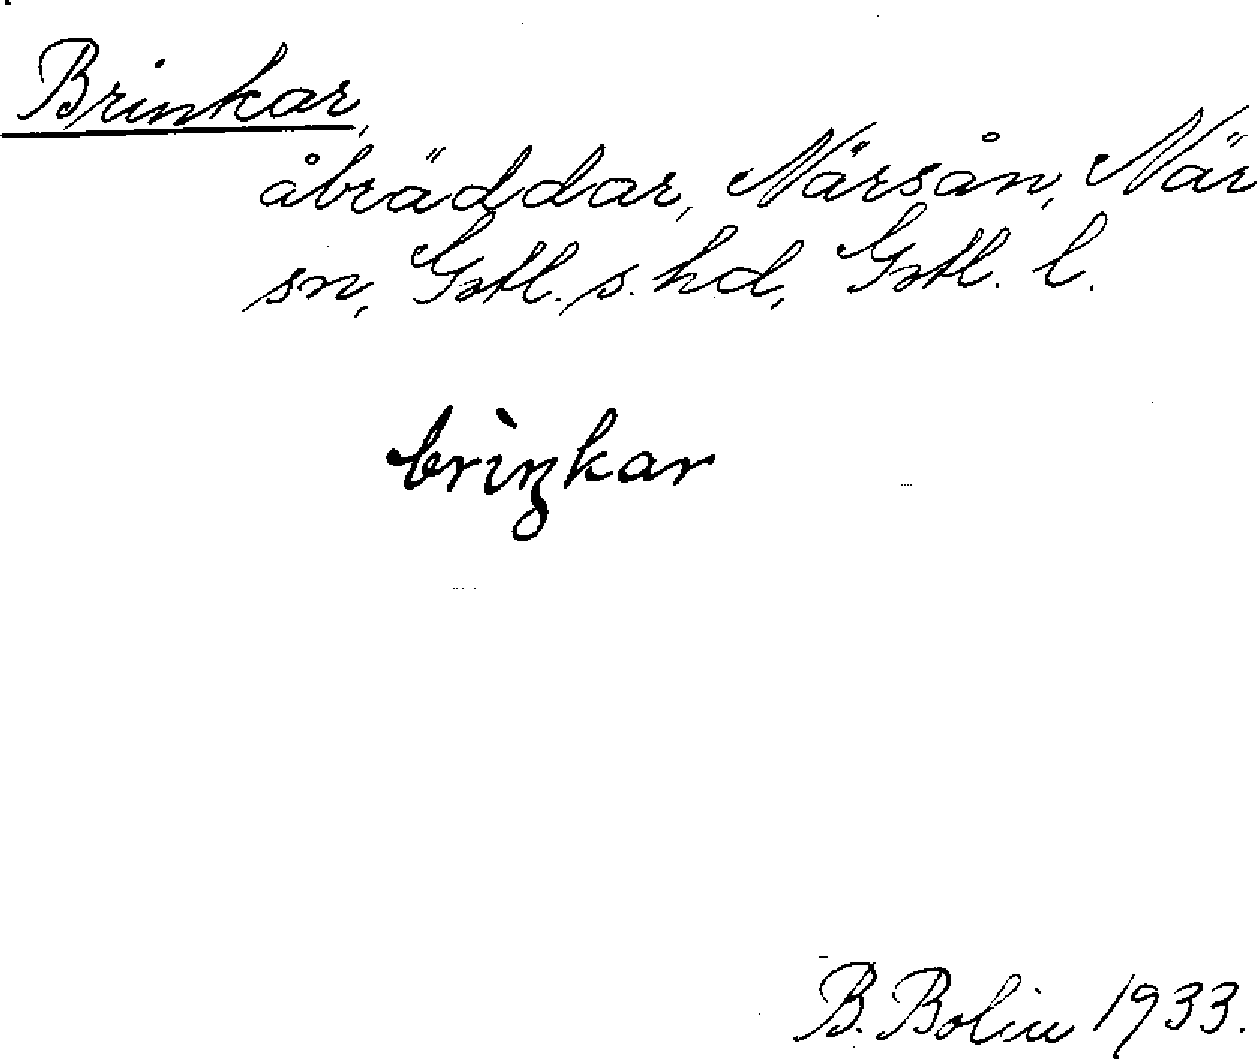 Brinkar,
åbräddar, Närsån, När
sn, Gotl. s. hd, Gotl. l.
brìŋkar
B. Bolin 1933.